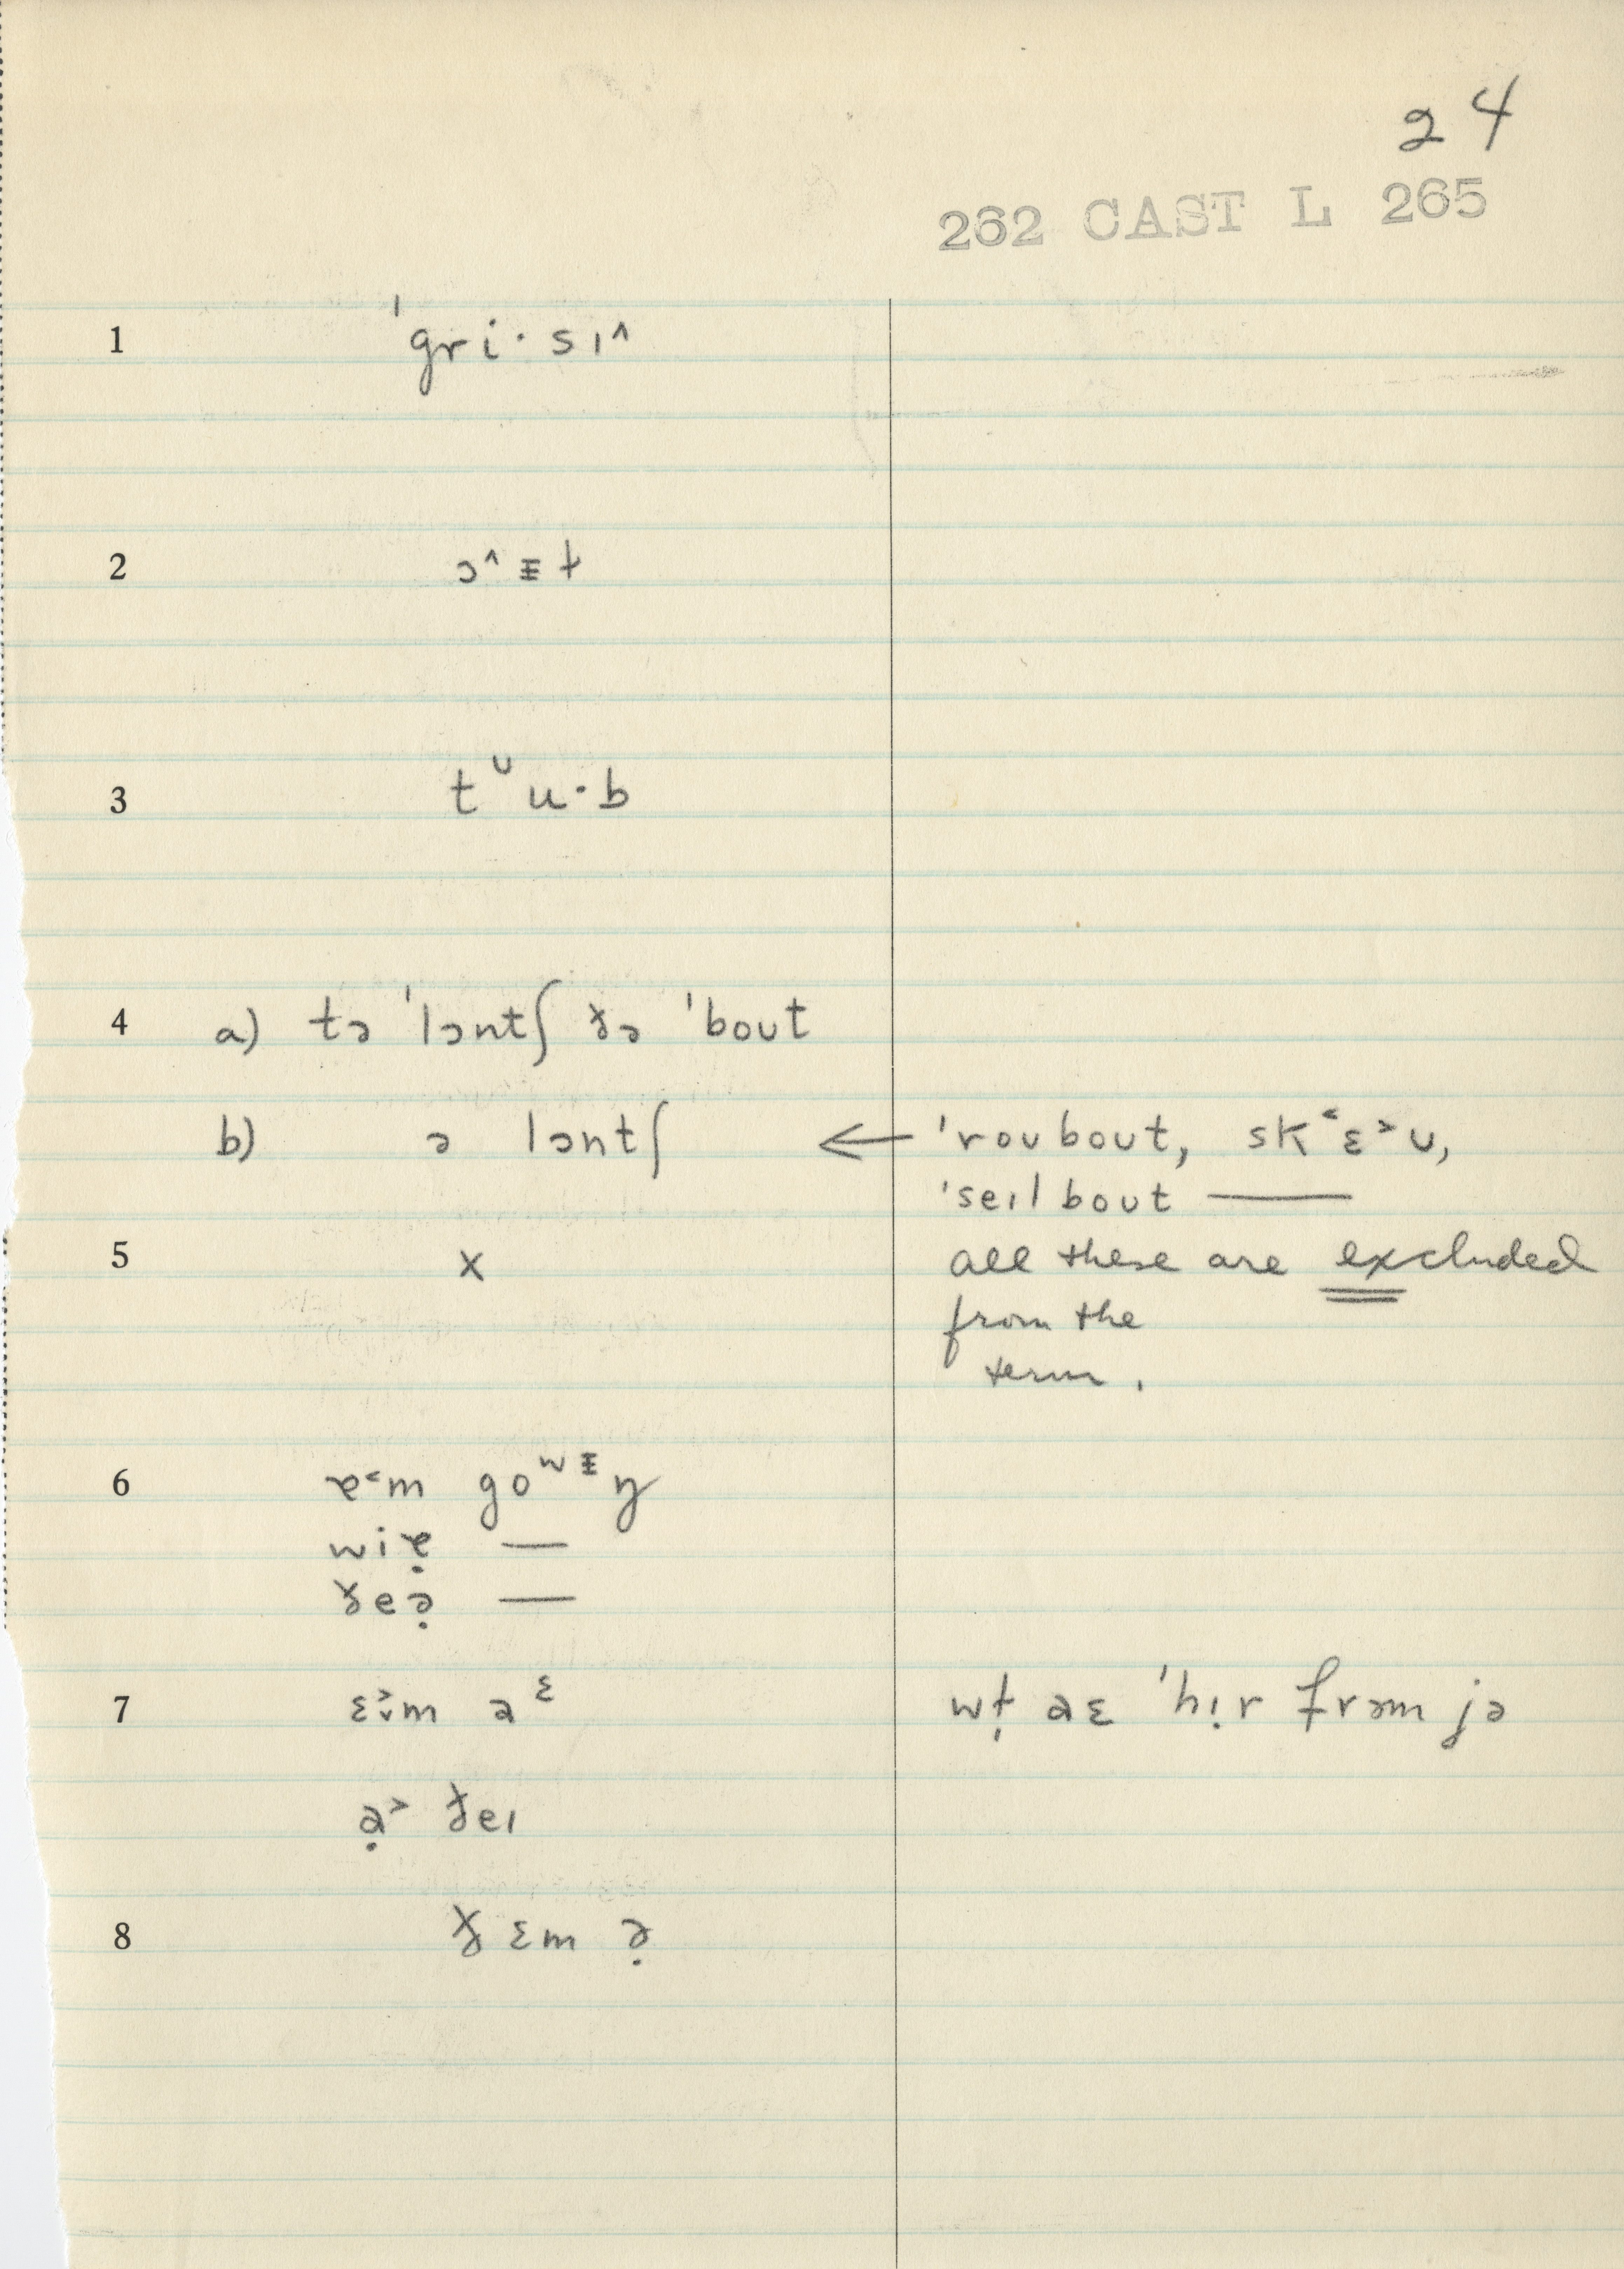 24
262 CAST L 265
1 ˈgri·sɪ^
2 ɔ^ɪ̵ɫ
3 tᶸu·b
4 a) tə ˈlɔntʃ ðə ˈbout
b) ə lɔntʃ ← ˈroʊbout, sk˂ɛ˃ʊ,
ˈseɪlbout —
5 x all these are excluded
from the
term.
6 ɐ˂m goʷᵻŋ
wiɐ̣ —
ðeə̣ —
7 ɛ˃m aᵋ wɫ̩ aɛ ˈhɪ̣r frəm jə
ạ˃ ðeɪ
8 ðɛm ə̣